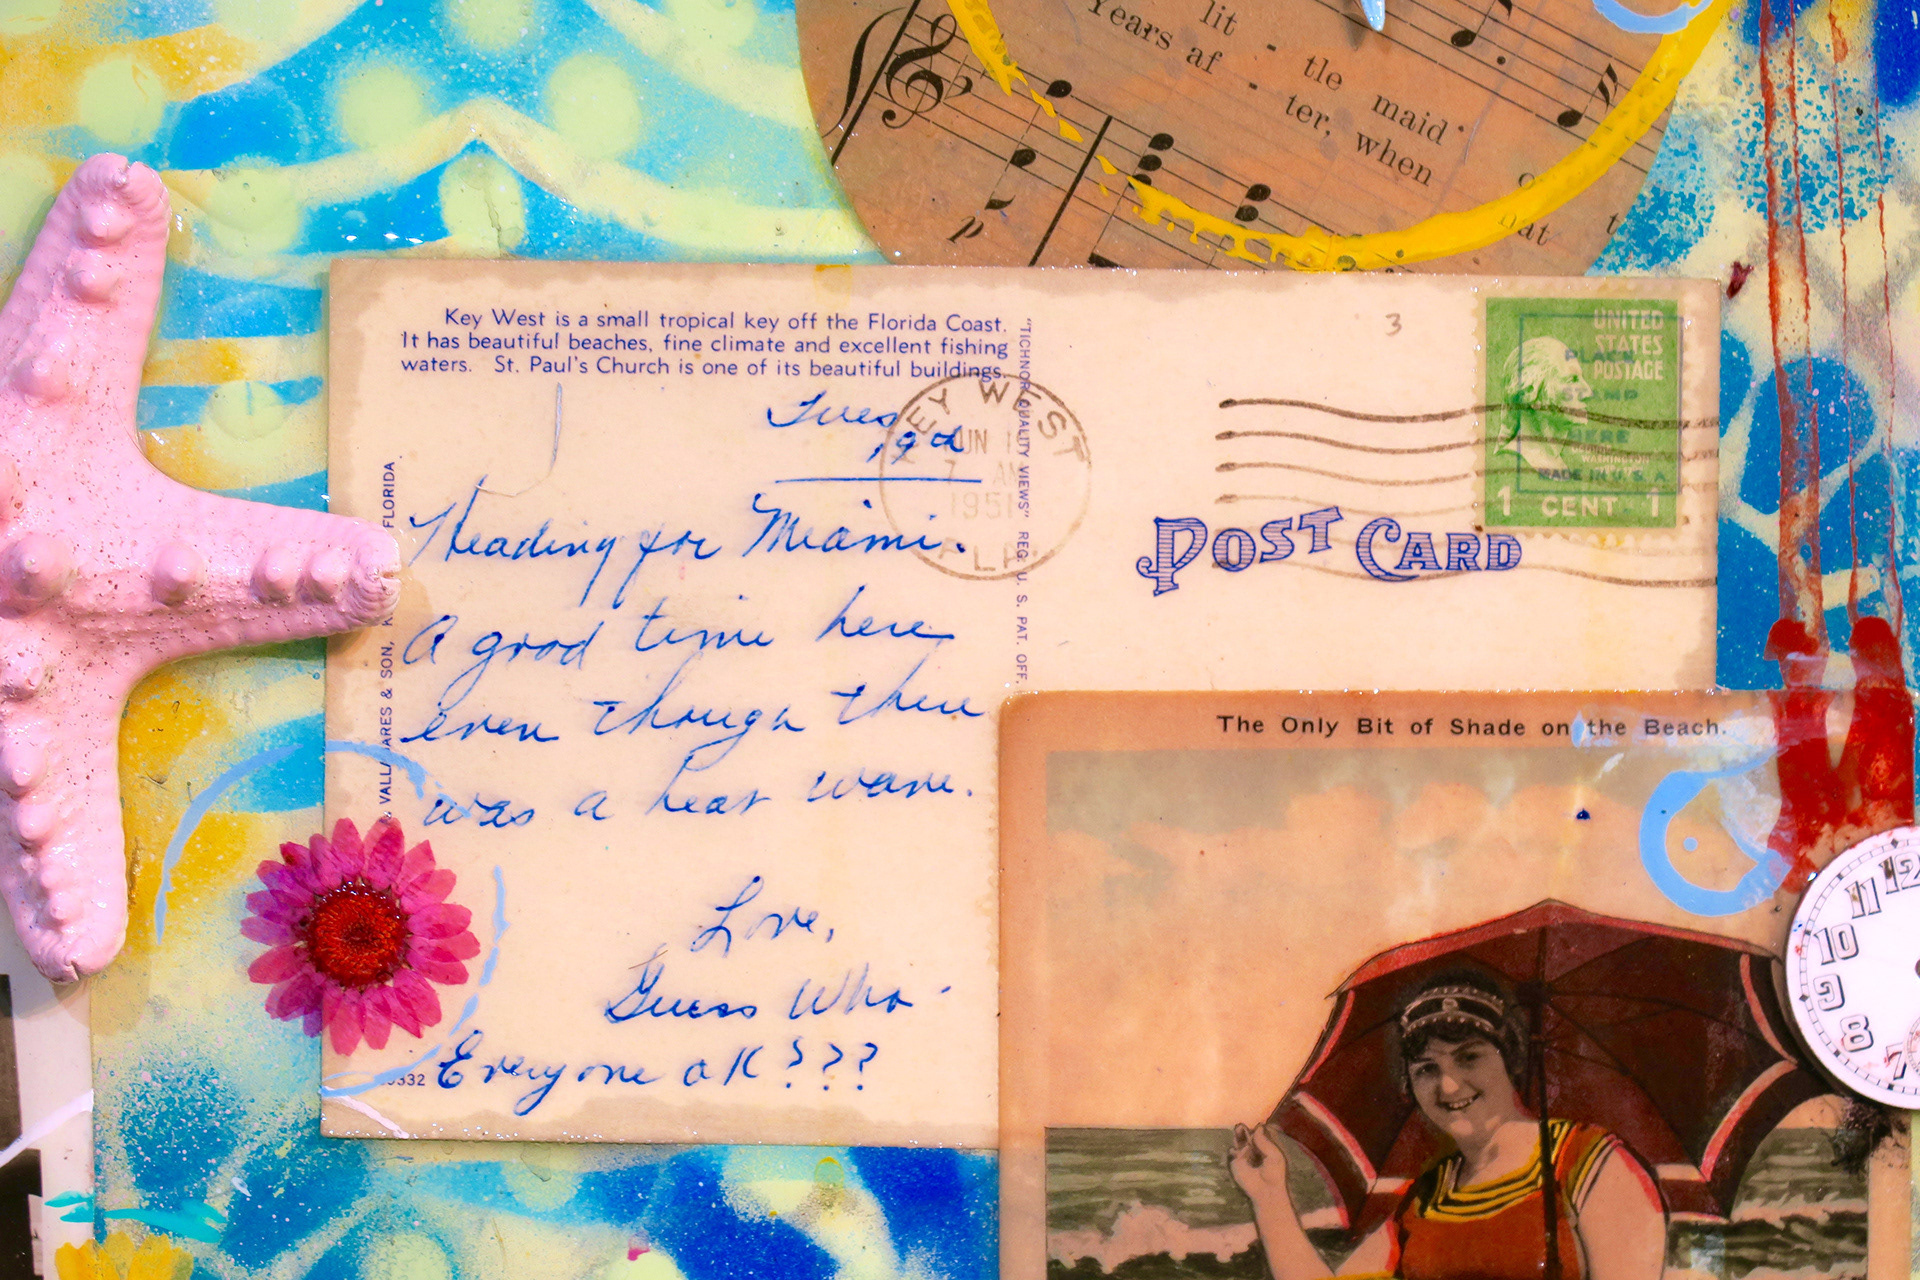 lit - tle maid
Years af - ter, when
p
Key West is a small tropical key off the Florida Coast.
It has beautiful beaches, fine climate and excellent fishing
waters. St. Paul's Church is one of its beautiful buildings.
"TICHNOR QUALITY VIEWS" REG. U. S. PAT. OFF.
3
UNITED
STATES
POSTAGE
PLACE
STAMP
HERE
WASHINGTON
MADE IN U. S. A
1 CENT 1
KEY WEST
7 AM
1951
FLA
POST CARD
Tues
Heading for Miami.
A good time here
even though there
was a heat wave.
Love,
Guess Who -
Everyone OK???
& SON,
FLORIDA
The Only Bit of Shade on the Beach.
12
11
10
9
8
7